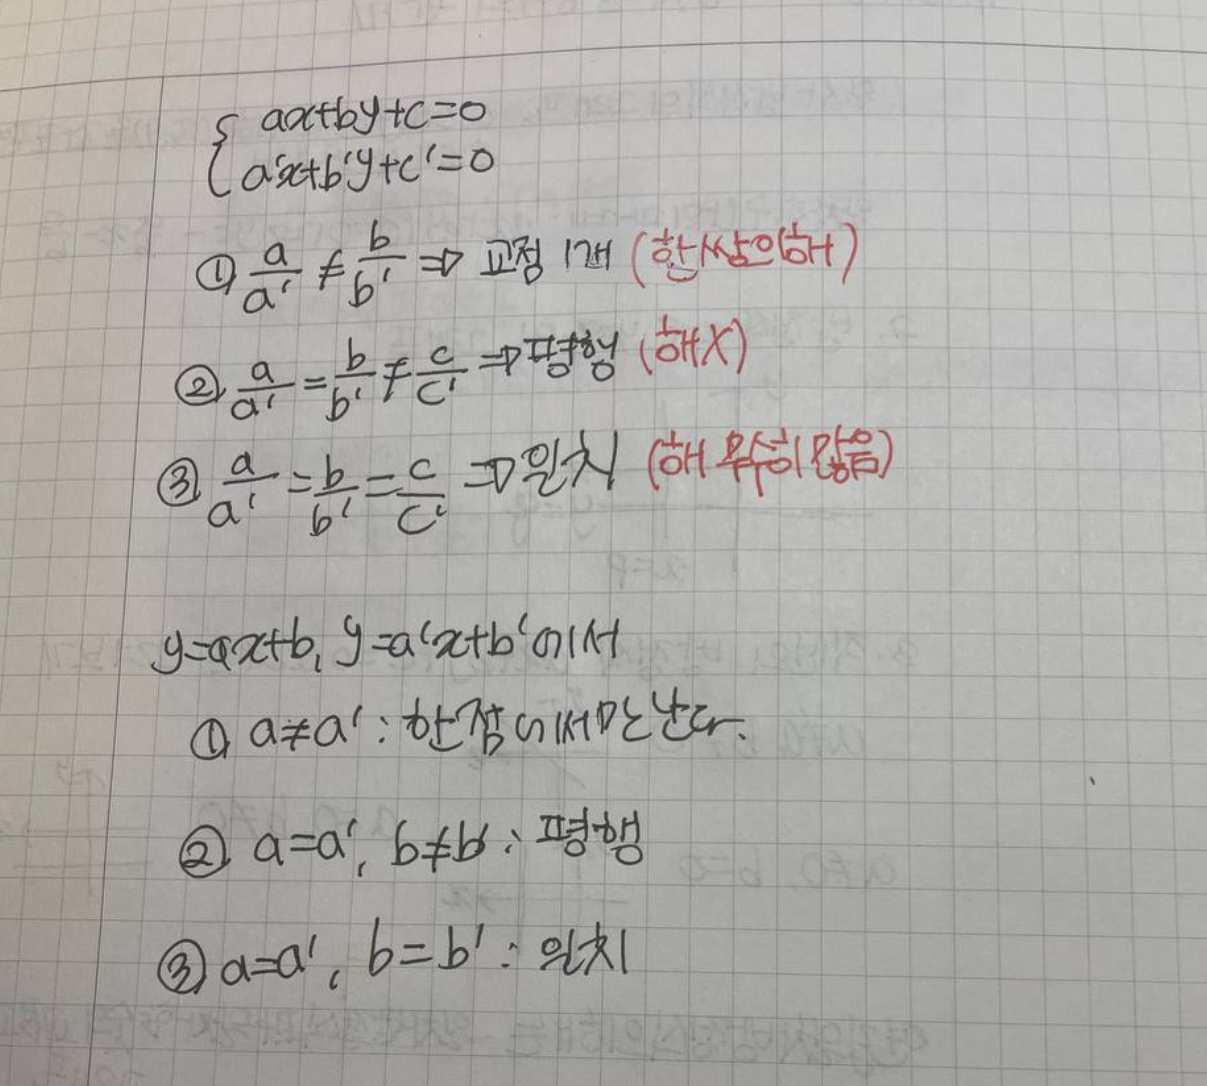 { ax+by+c=0
a'x+b'y+c'=0
① a/a' ≠ b/b' ⇒ 교점 1개 (한쌍의해)
② a/a' = b/b' ≠ c/c' ⇒ 평행 (해X)
③ a/a' = b/b' = c/c' ⇒ 일치 (해 무수히 많음)
y=ax+b, y=a'x+b'에서
① a≠a' : 한점에서만난다.
② a=a', b≠b' : 평행
③ a=a', b=b' : 일치